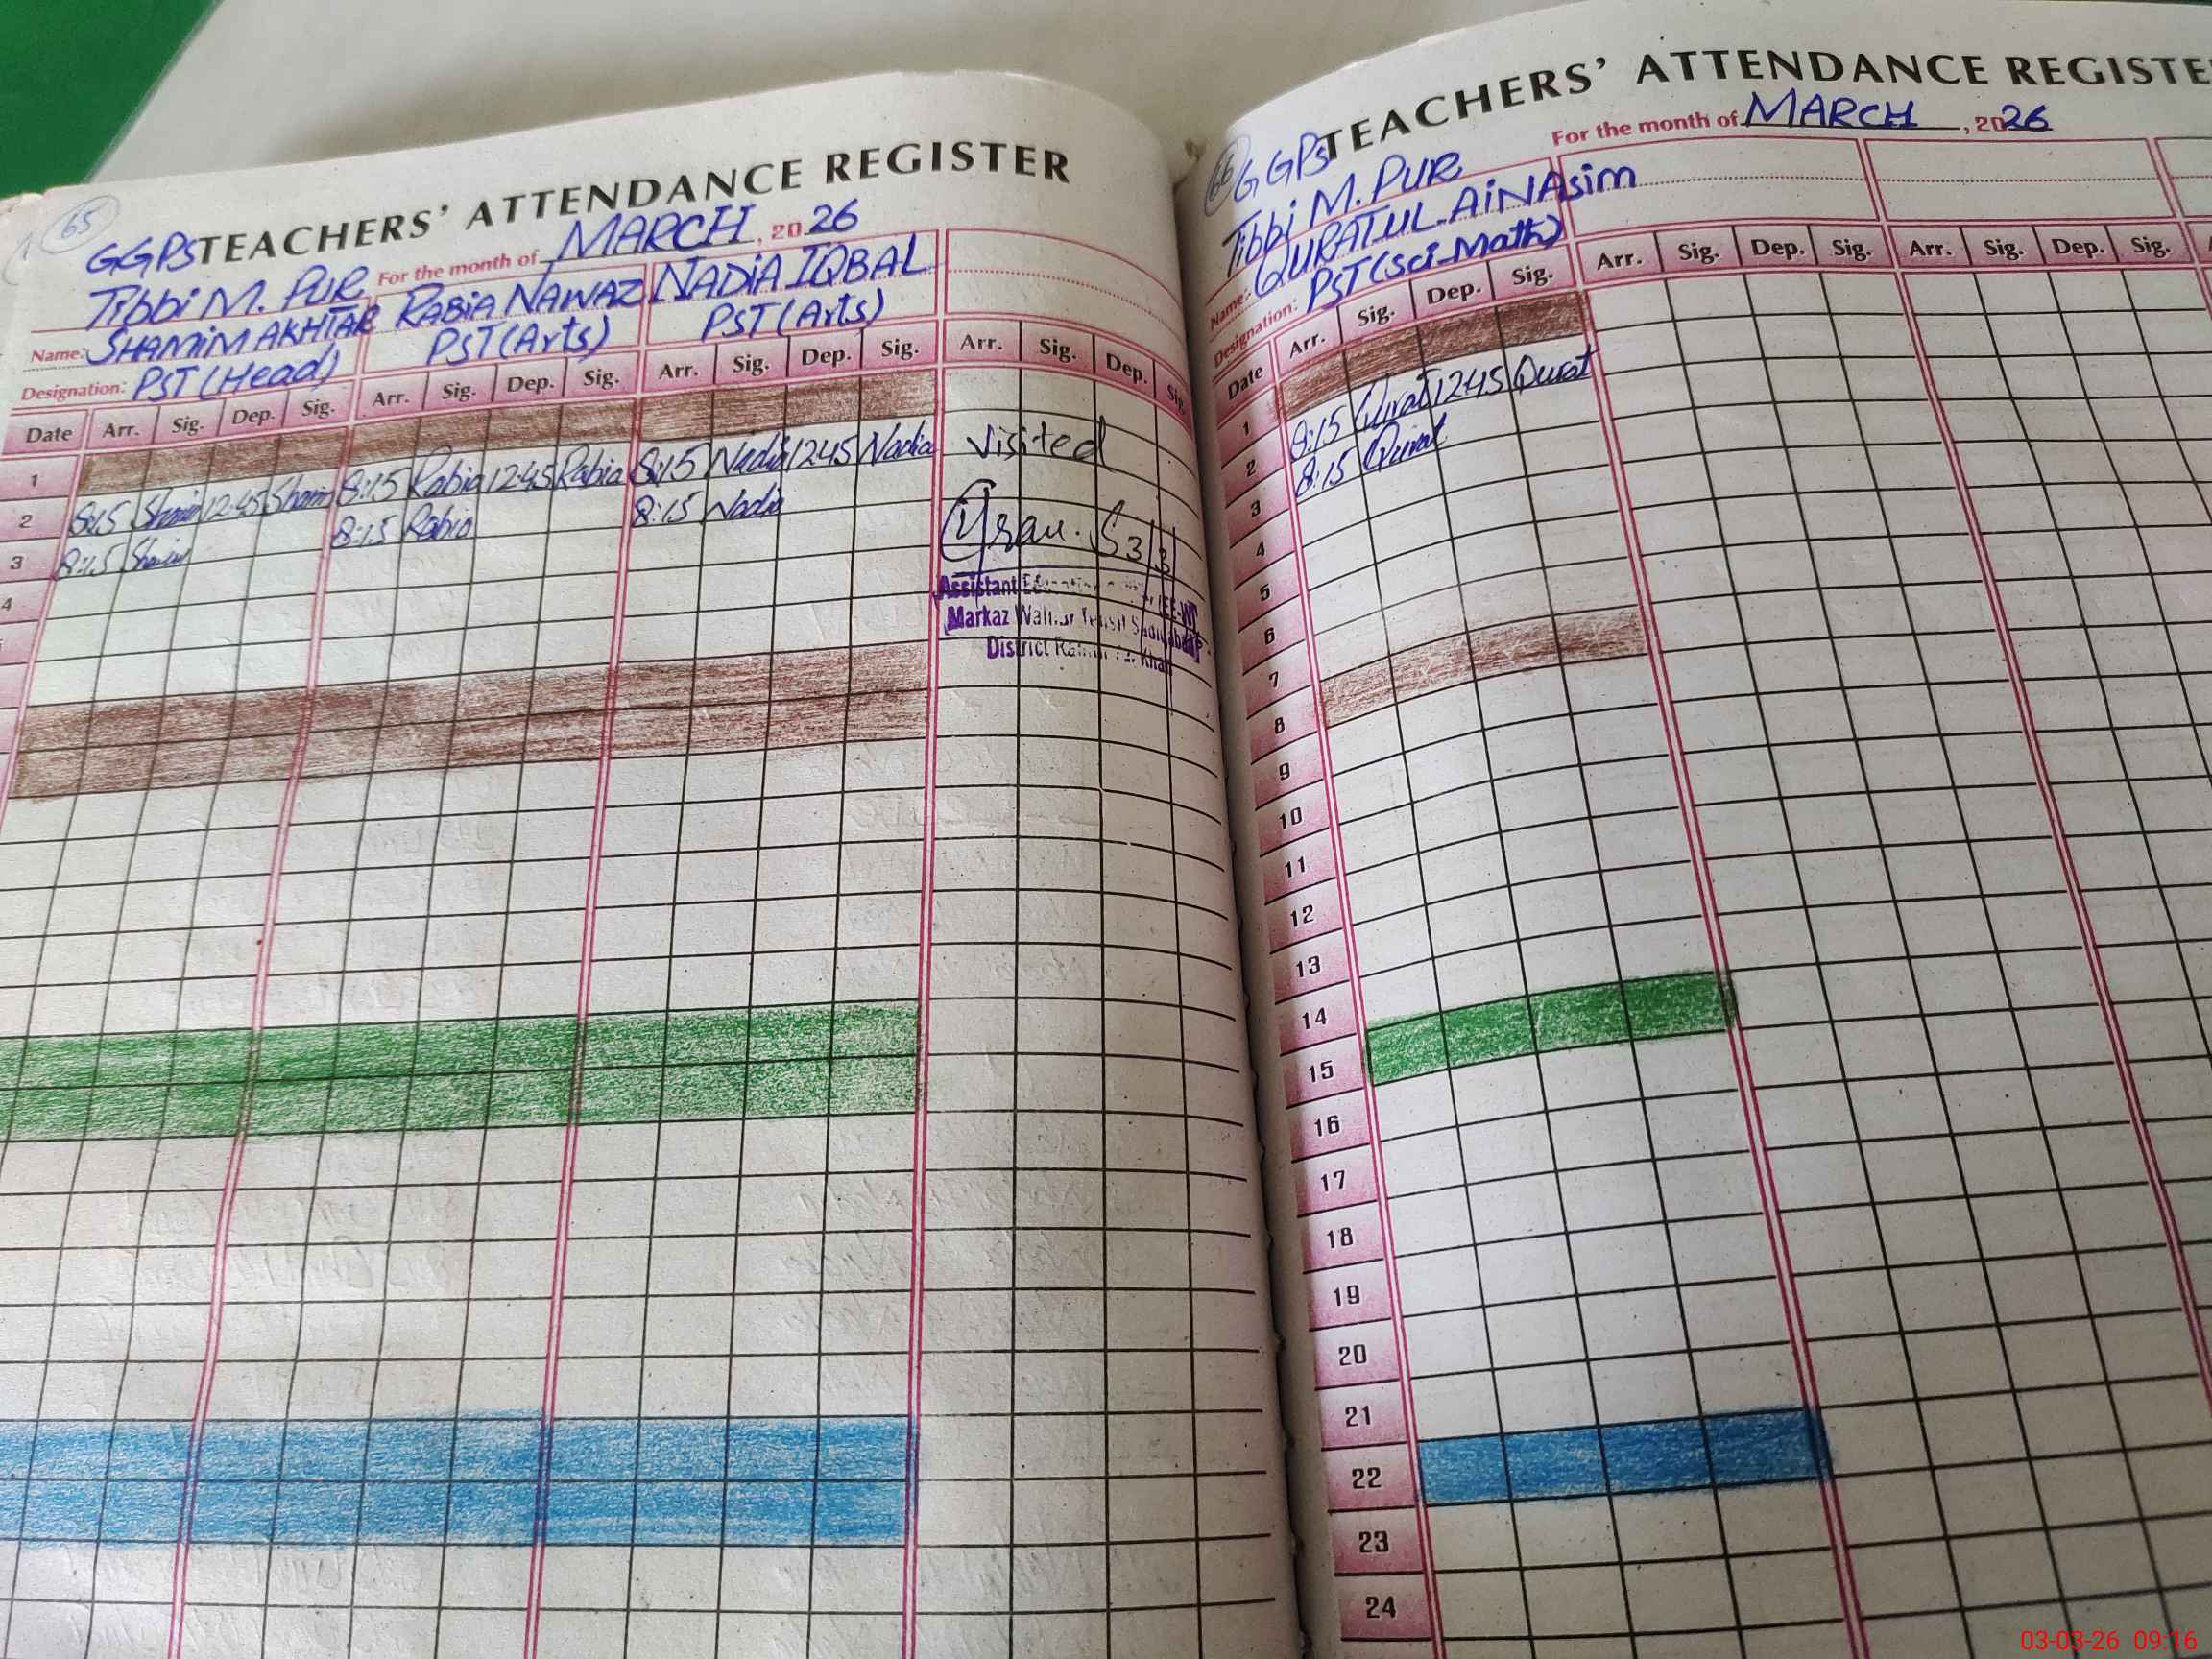 65
TEACHERS' ATTENDANCE REGISTER
GGPS
Tibbi M. PUR
For the month of MARCH, 2026
Name: SHAMIM AKHTAR RABIA NAWAZ NADIA IQBAL
Designation: PST (Head) PST (Arts) PST (Arts)
Date Arr. Sig. Dep. Sig. Arr. Sig. Dep. Sig. Arr. Sig. Dep. Sig. Arr. Sig. Dep. Sig.
1
2 8:15 Shamim 12:45 Shamim 8:15 Rabia 12:45 Rabia 8:15 Nadia 12:45 Nadia
3 8:15 Shamim 8:15 Rabia 8:15 Nadia
4
Visited
3/3
Assistant
Markaz
District
66
TEACHERS' ATTENDANCE REGISTE
GGPS
Tibbi M. PUR
For the month of MARCH, 2026
Name: QURATUL-AIN Asim
Designation: PST (Sci-Math)
Date Arr. Sig. Dep. Sig. Arr. Sig. Dep. Sig. Arr. Sig. Dep. Sig.
1
2 8:15 Qurat 12:45 Qurat
3 8:15 Qurat
4
5
6
7
8
9
10
11
12
13
14
15
16
17
18
19
20
21
22
23
24
03-03-26 09:16